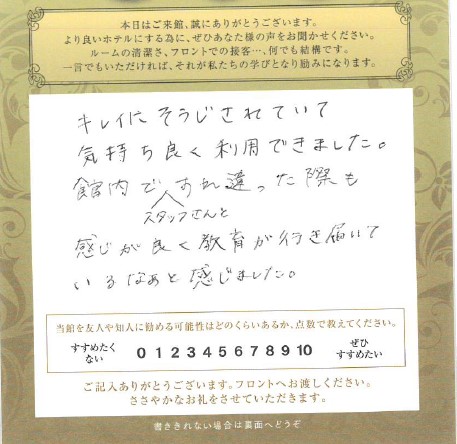 本日はご来館、誠にありがとうございます。
より良いホテルにする為に、ぜひあなた様の声をお聞かせください。
ルームの清潔さ、フロントでの接客…、何でも結構です。
一言でもいただければ、それが私たちの学びとなり励みになります。
キレイにそうじされていて
気持ち良く利用できました。
館内ですれ違った際も
スタッフさんと
感じが良く教育が行き届いて
いるなぁと感じました。
当館を友人や知人に勧める可能性はどのくらいあるか、点数で教えてください。
すすめたくない 0 1 2 3 4 5 6 7 8 9 10 ぜひすすめたい
ご記入ありがとうございます。フロントへお渡しください。
ささやかなお礼をさせていただきます。
書ききれない場合は裏面へどうぞ